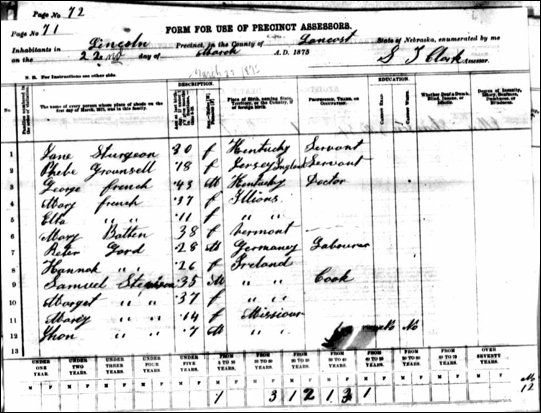 Page No 72
Page No 71
FORM FOR USE OF PRECINCT ASSESSORS.
Inhabitants in Lincoln Precinct, in the County of Lancast State of Nebraska, enumerated by me
on the 22 day of March A. D. 1875 S T Clark Assessor.
March 22 1875
N. B. For Instructions see other side.
DESCRIPTION EDUCATION
No.
The name of every person whose place of abode on the first day of March, 1875, was in this family.
Place of Birth, naming State, Territory, or the Country, if of foreign birth.
Profession, Trade, or Occupation.
Cannot Read.
Cannot Write.
Whether Deaf & Dumb, Blind, Insane, or Idiotic.
1 Jane Sturgeon 30 f Kentucky Servant
2 Phebe Grounsell 18 f Jersey England Servant
3 George french 43 M Kentucky Doctor
4 Mary french 37 f Illions
5 Ella " " 11 f " "
6 Mary Batten 38 f Vermont
7 Peter Gord 28 M Germaney Labourer
8 Hannah " 26 f Ireland
9 Samuel 35 M " " Cook
10 Marget " " 37 f " "
11 Marey " " 14 f Missiour
12 Jhon " " 7 M " " No No
13
UNDER ONE YEAR UNDER TWO YEARS UNDER THREE YEARS UNDER FOUR YEARS UNDER FIVE YEARS FROM 5 TO 10 YEARS FROM 10 TO 20 YEARS FROM 20 TO 30 YEARS FROM 30 TO 40 YEARS FROM 40 TO 50 YEARS FROM 50 TO 60 YEARS FROM 60 TO 70 YEARS OVER SEVENTY YEARS
M F M F M F M F M F M F M F M F M F M F M F M F M F
1 3 1 2 1 3 1
12